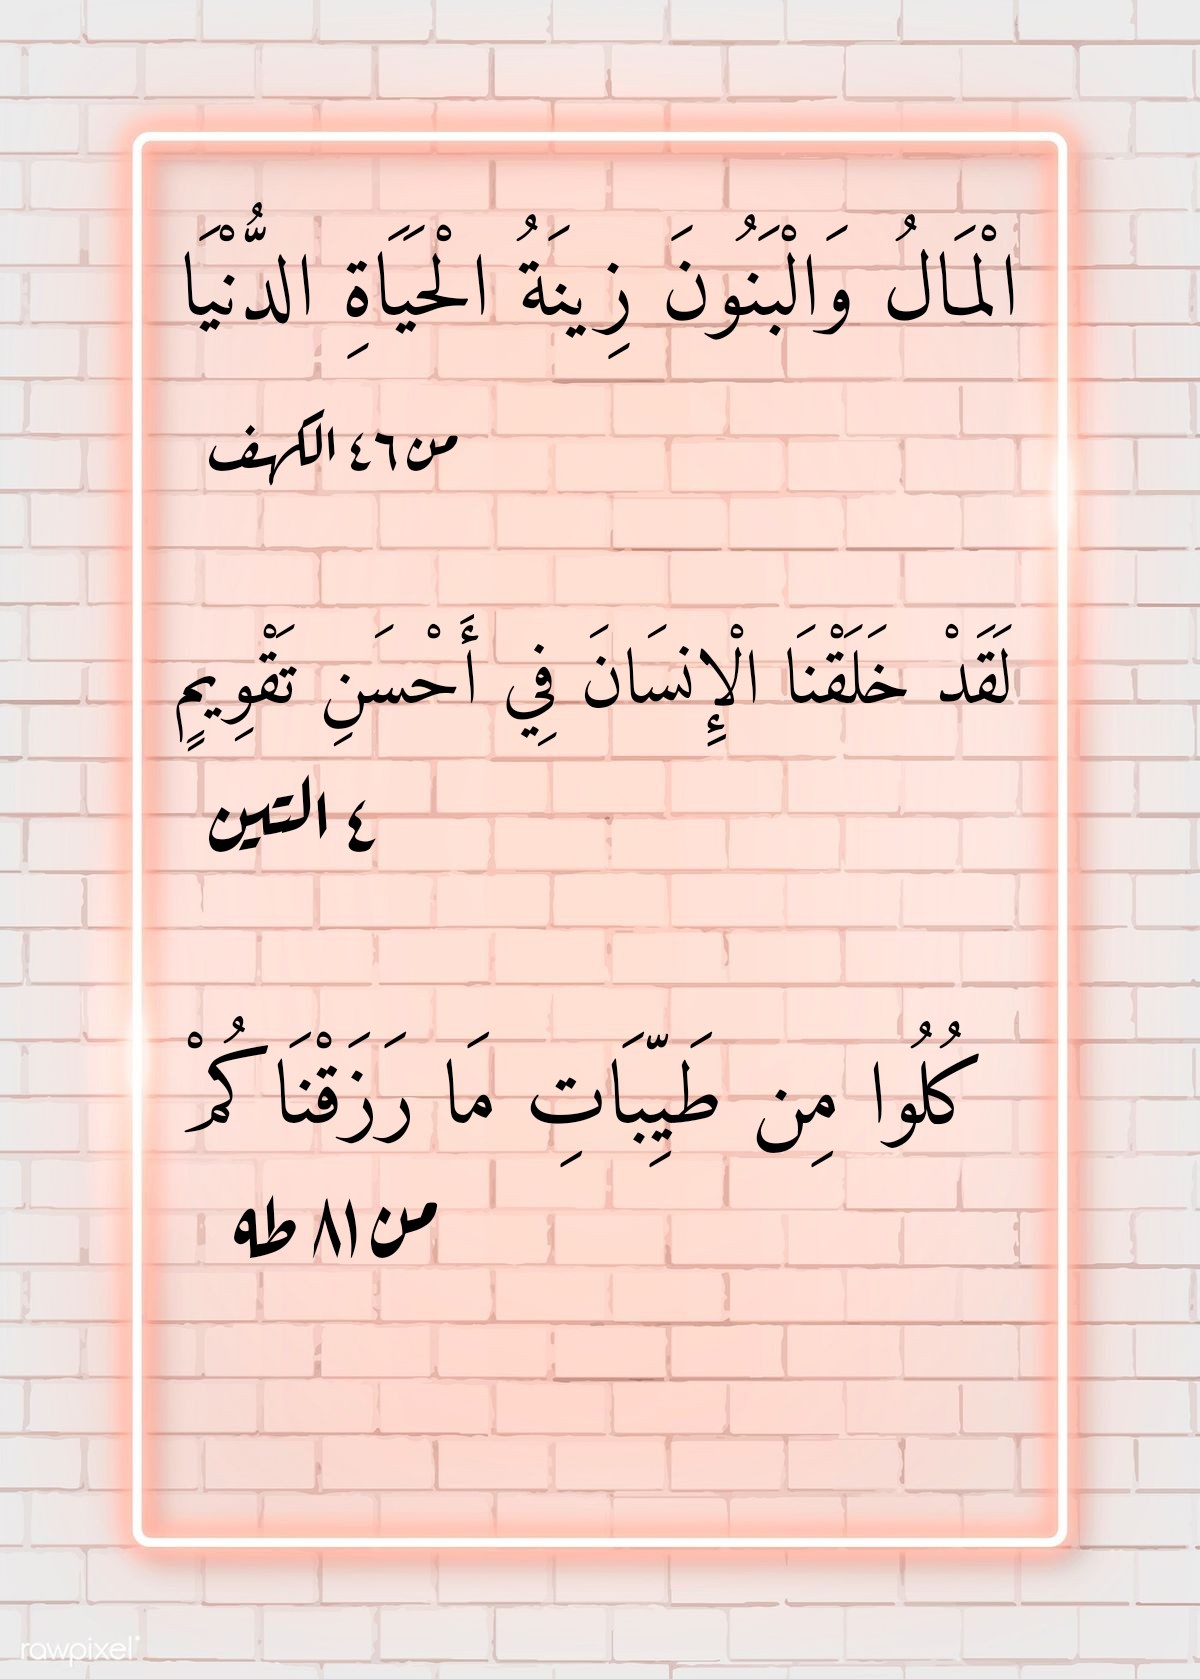 الْمَالُ وَالْبَنُونَ زِينَةُ الْحَيَاةِ الدُّنْيَا
من ٤٦ الكهف
لَقَدْ خَلَقْنَا الْإِنسَانَ فِي أَحْسَنِ تَقْوِيمٍ
٤ التين
كُلُوا مِن طَيِّبَاتِ مَا رَزَقْنَاكُمْ
من ٨١ طه
rawpixel